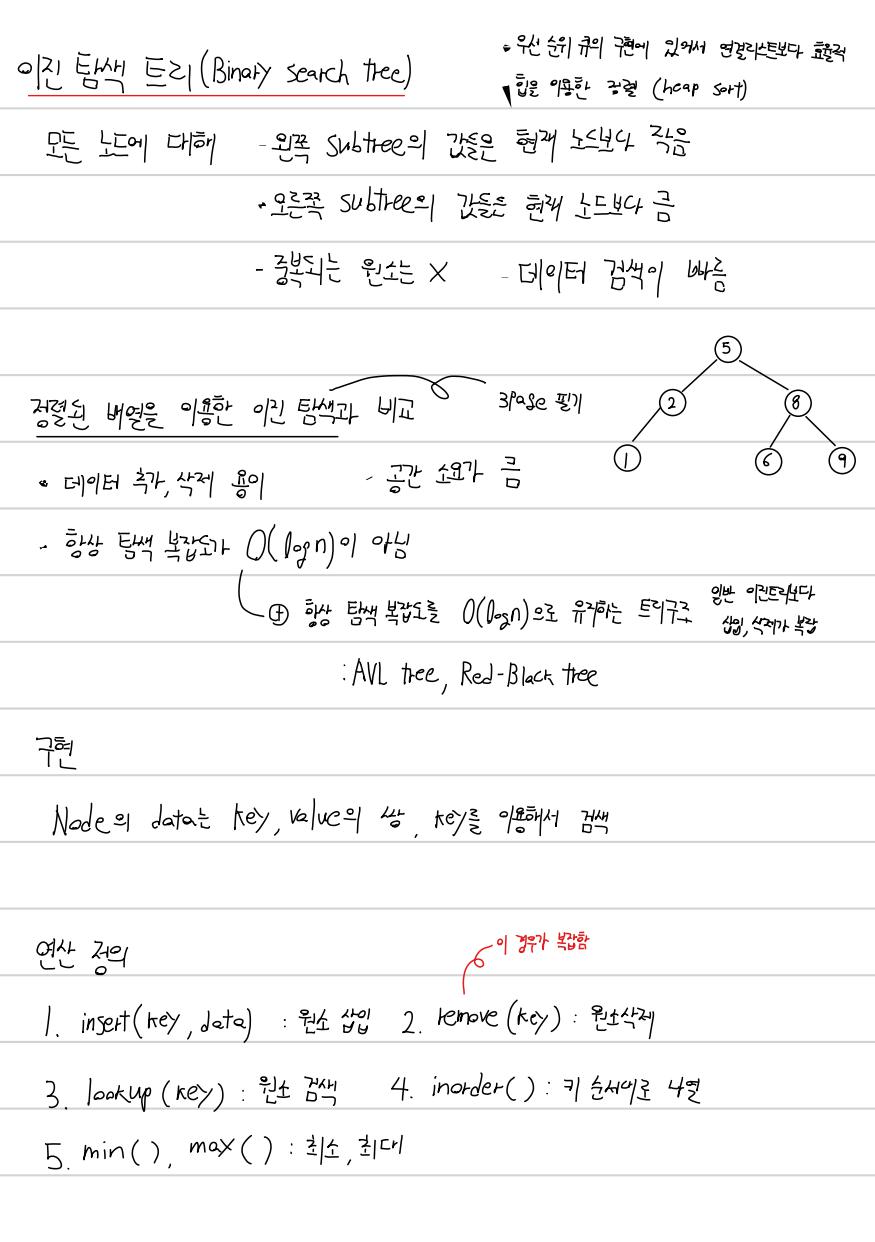 · 우선 순위 큐의 구현에 있어서 연결리스트보다 효율적
힙을 이용한 정렬 (heap sort)
이진 탐색 트리(Binary search tree)
모든 노드에 대해 - 왼쪽 subtree의 값들은 현재 노드보다 작음
· 오른쪽 subtree의 값들은 현재 노드보다 큼
- 중복되는 원소는 X - 데이터 검색이 빠름
정렬된 배열을 이용한 이진 탐색과 비교 3page 필기
5
2 8
1 6 9
· 데이터 추가, 삭제 용이 - 공간 소요가 큼
- 항상 탐색 복잡도가 O(logn)이 아님
⊕ 항상 탐색 복잡도를 O(logn)으로 유지하는 트리구조
일반 이진트리보다
삽입, 삭제가 복잡
: AVL tree, Red-Black tree
구현
Node의 data는 key, value의 쌍, key를 이용해서 검색
연산 정의
이 경우가 복잡함
1. insert(key, data) : 원소 삽입 2. remove(key) : 원소삭제
3. lookup(key) : 원소 검색 4. inorder() : 키 순서대로 나열
5. min(), max() : 최소, 최대